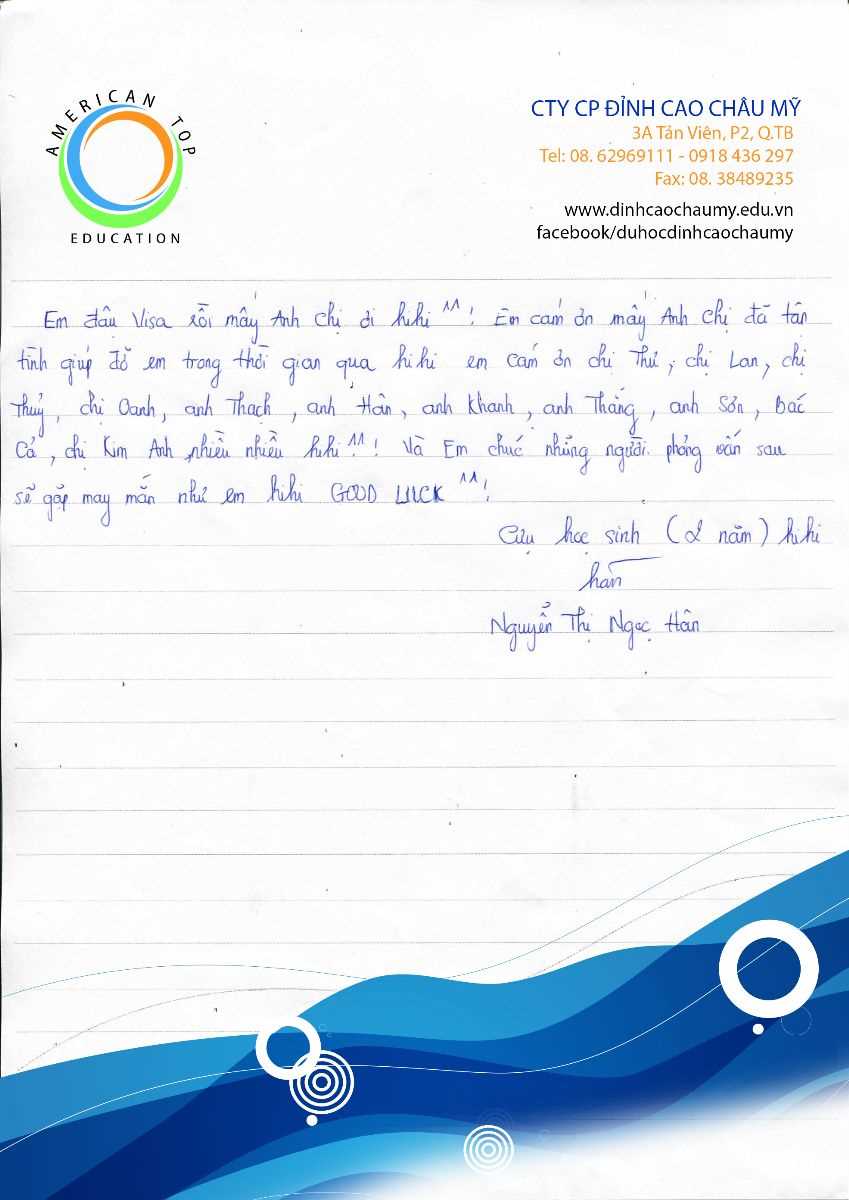 AMERICAN TOP
EDUCATION
CTY CP ĐỈNH CAO CHÂU MỸ
3A Tản Viên, P2, Q.TB
Tel: 08. 62969111 - 0918 436 297
Fax: 08. 38489235
www.dinhcaochaumy.edu.vn
facebook/duhocdinhcaochaumy
Em đậu Visa rồi mấy Anh chị ơi hihi ^^! Em cám ơn mấy Anh chị đã tận
tình giúp đỡ em trong thời gian qua hihi em cám ơn chị Thư, chị Lan, chị
Thuỷ, chị Oanh, anh Thạch, anh Hân, anh Khanh, anh Thắng, anh Sơn, Bác
Cả, chị Kim Anh nhiều nhiều hihi ^^! Và Em chúc những người phỏng vấn sau
sẽ gặp may mắn như em hihi GOOD LUCK ^^!
Cựu học sinh (2 năm) hihi
hân
Nguyễn Thị Ngọc Hân